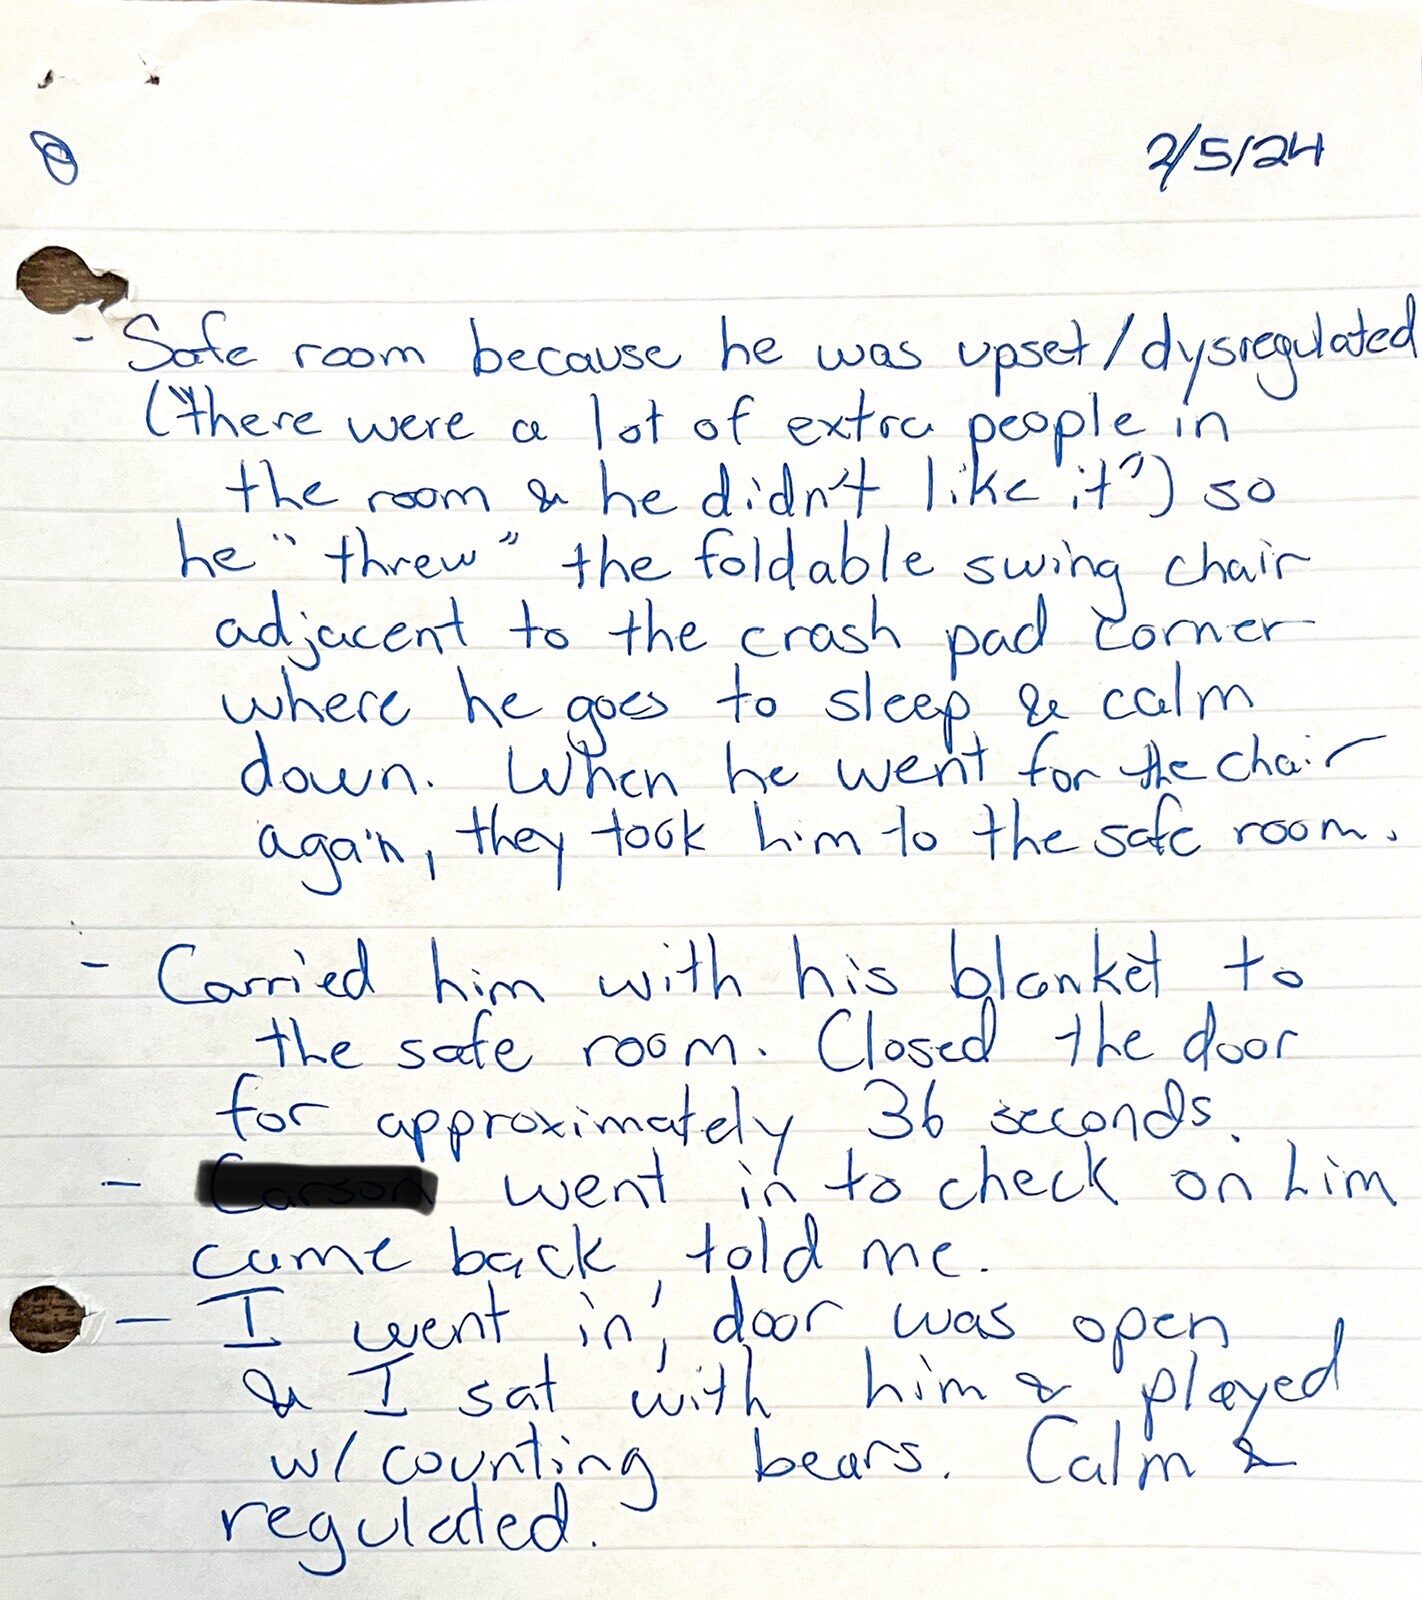 2/5/24
- Safe room because he was upset/dysregulated
("there were a lot of extra people in
the room & he didn't like it") so
he "threw" the foldable swing chair
adjacent to the crash pad corner
where he goes to sleep & calm
down. When he went for the chair
again, they took him to the safe room.
- Carried him with his blanket to
the safe room. Closed the door
for approximately 36 seconds.
- went in to check on him
came back, told me.
- I went in, door was open
& I sat with him & played
w/ counting bears. Calm &
regulated.